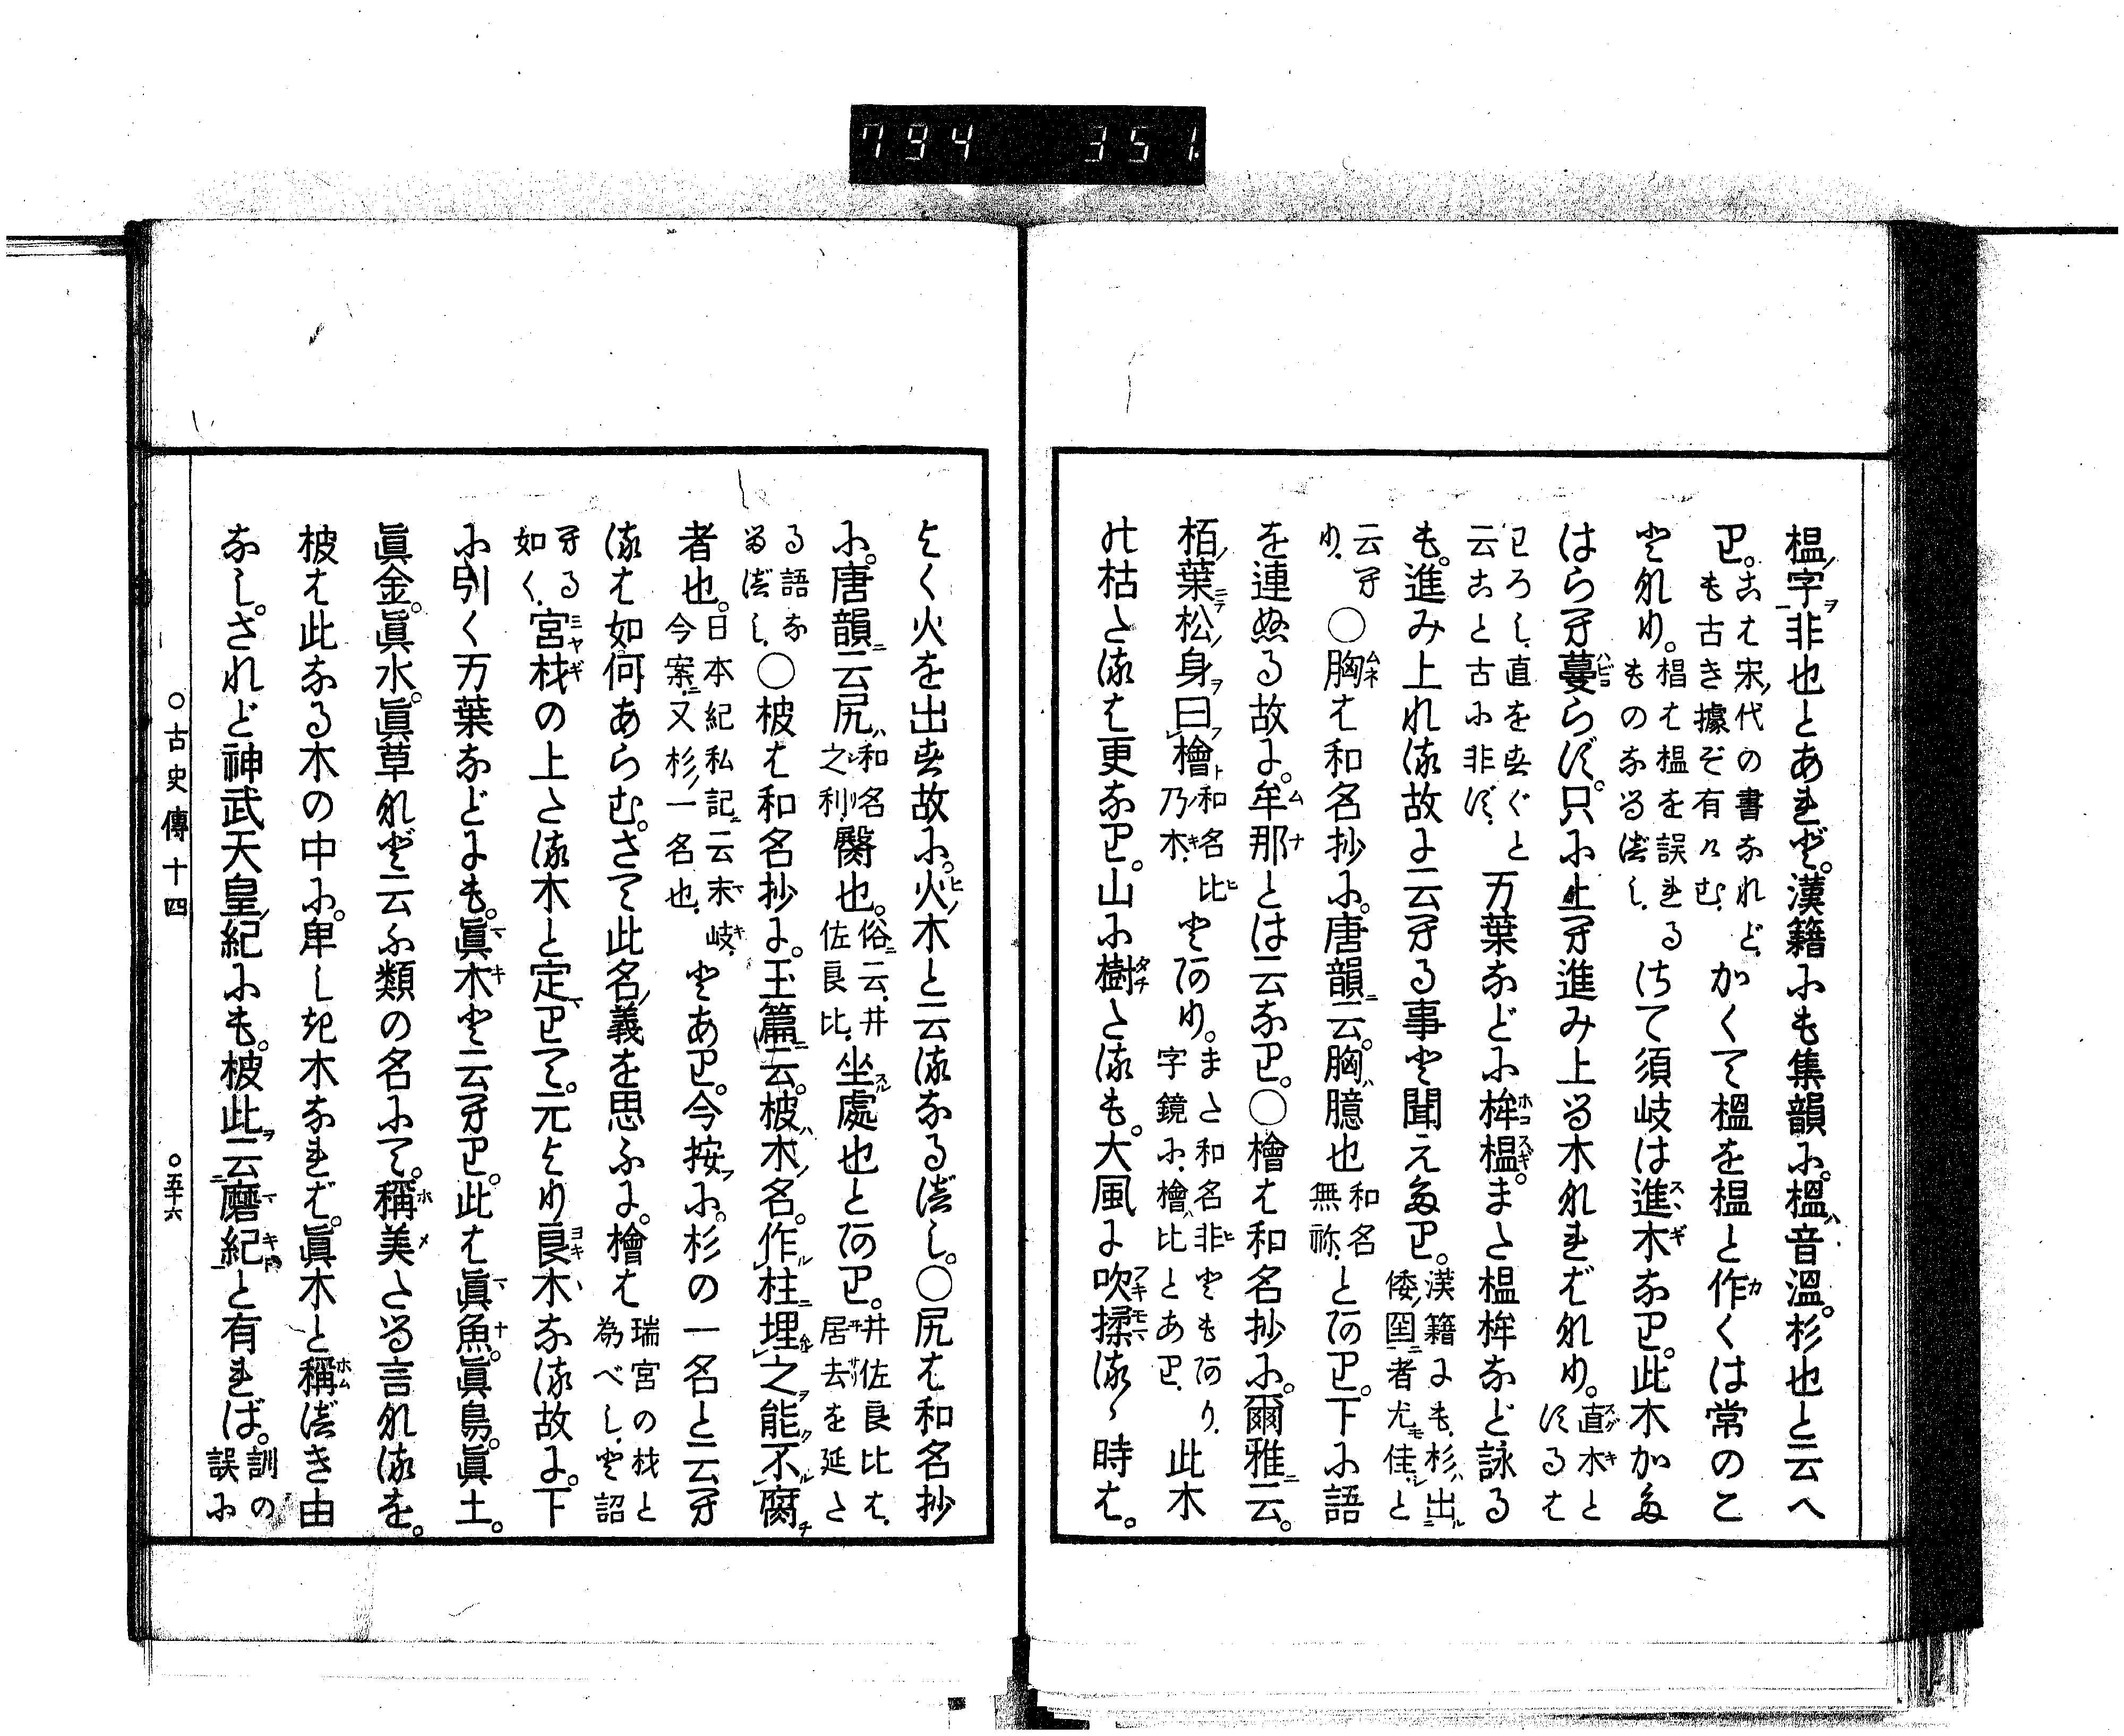 794 351
榅ノ字ヲ非也とあれど。漢籍にも集韻に。榲ハ音溫。杉也と云へ
り。こは宋ノ代の書なれど、も古き據ぞ有けむ、かくて榲を榅と作くは常のこ
となり。椙は榅を誤れるものなるべし、けて須岐は進木なり。此木かた
はらに蔓らず。只に上に進み上る木なればなり。直木とするは
わろし、直をすぐと云こと古に非ず、万葉などに桙榲。また榅桙など詠る
も。進み上れる故に云へる事と聞えたり。漢籍にも、杉ハ出倭國ニ者尤モ佳シと
云へり、○胸は和名抄に。唐韻ニ云。胸ハ臆也和名無祢、とあり。下に語
を連ぬる故に。牟那とは云なり。○檜は和名抄に。爾雅ニ云。
栢ノ葉ニテ松ノ身ヲ曰フ檜ト和名比乃木、とあり。また和名非ともあり、字鏡に、檜ハ比とあり、此木
の枯たるは更なり。山に樹たるも。大風に吹揉るゝ時は。
よく火を出す故に。火ノ木と云るなるべし。○尻は和名抄
に。唐韻ニ云尻ハ和名之利、臋也。俗ニ云、井佐良比、坐處也とあり。井佐良比は、居去を延た
る語なるべし、○柀は和名抄に。玉篇ニ云。柀ハ木ノ名。作柱埋之能不腐
者也。日本紀私記ニ云末岐、今案ニ又杉ノ一名也、とあり。今按フに。杉の一名と云へ
るは如何あらむ。さて此名ノ義を思ふに。檜は瑞宮の材と為べし、と詔
へる如く、宮材の上たる木と定りて。元より良木なる故に。下
に引く万葉などにも。眞木と云へり。此は眞魚。眞鳥。眞土。
眞金。眞水。眞草など云ふ類の名にて。稱美たる言なるを。
柀は此なる木の中に。卑しき木なれば。眞木と稱べき由
なし。されど神武天皇ノ紀にも。柀此ヲ云磨紀と有れば。訓の誤に
○古史傳十四 ○五十六